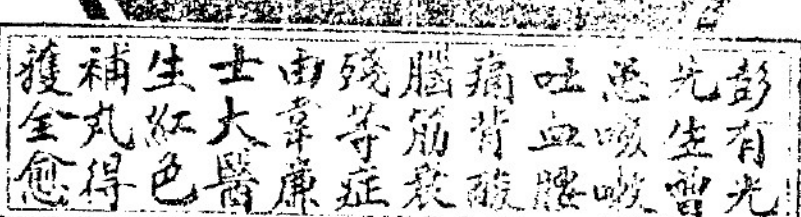 彭有光
先生曾
患咳嗽
吐血腰
痛背酸
腦筋衰
殘等症
由韋廉
士大醫
生紅色
補丸得
獲全愈